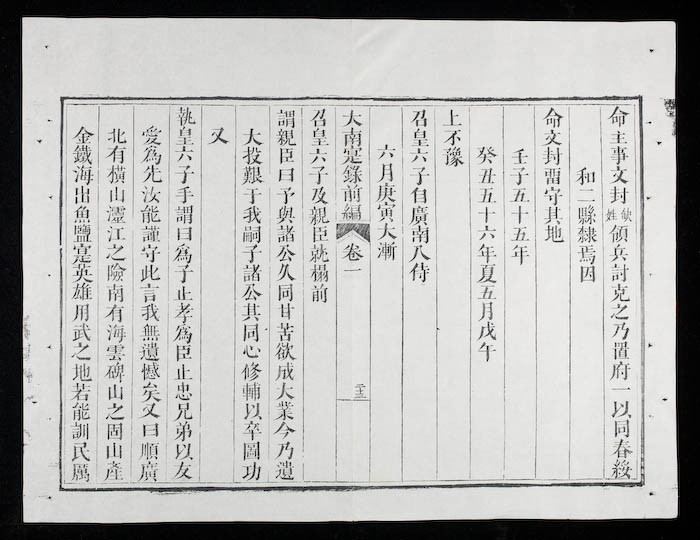 命主事文封缺姓領兵討克之乃置府一以同春綏
和二縣隸焉因
命文封畱守其地
壬子五十五年
癸丑五十六年夏五月戊午
上不豫
召皇六子自廣南入侍
六月庚寅大漸
大南寔錄前編 卷一 二十三
召皇六子及親臣就榻前
謂親臣曰予與諸公久同甘苦欲成大業今乃遺
大投艱于我嗣子諸公其同心修輔以卒圖功
又
執皇六子手謂曰爲子止孝爲臣止忠兄弟以友
愛爲先汝能謹守此言我無遺憾矣又曰順廣
北有橫山𤅷江之險南有海雲碑山之固山產
金鐵海出魚鹽寔英雄用武之地若能訓民厲